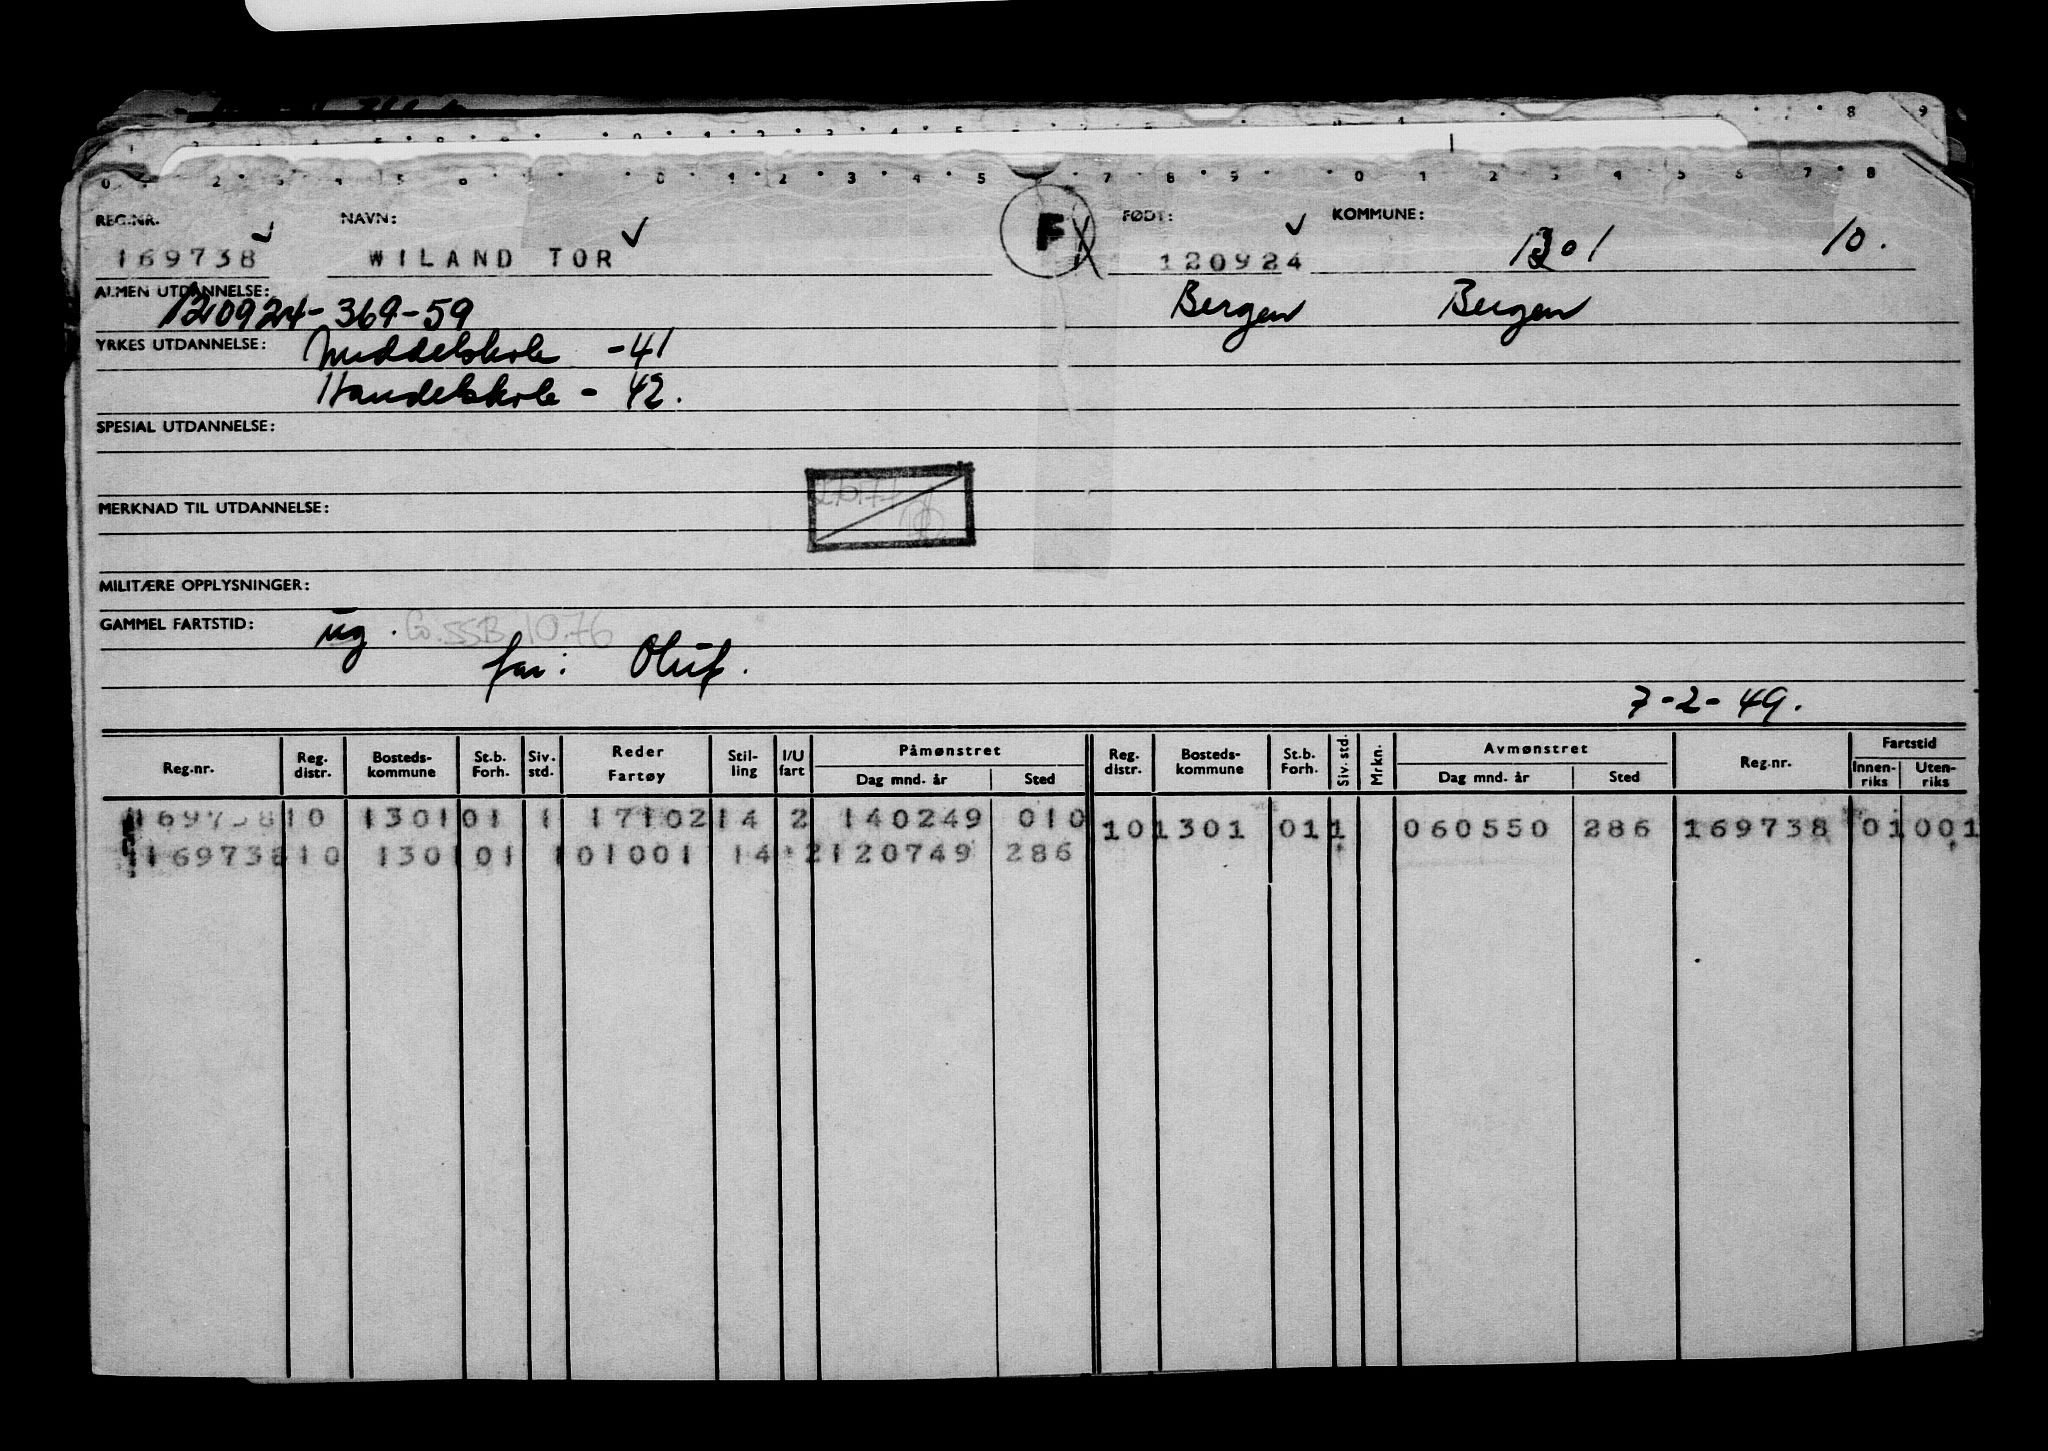 REG.NR. NAVN: FØDT: KOMMUNE:
169738 WILAND TOR F 120924 1301 10.
ALMEN UTDANNELSE:
120924-369-59 Bergen Bergen
YRKES UTDANNELSE: Middelskole - 41
Handelskole - 42.
SPESIAL UTDANNELSE:
MERKNAD TIL UTDANNELSE:
MILITÆRE OPPLYSNINGER:
GAMMEL FARTSTID: ug.
far: Oluf.
7-2-49.
Reg.nr. Reg. distr. Bosteds-kommune St.b. Forh. Siv. std. Reder Fartøy Stil-ling I/U fart Påmønstret Dag mnd. år Sted Reg. distr. Bosteds-kommune St.b. Forh. Siv. std. Mrkn. Avmønstret Dag mnd. år Sted Reg.nr. Fartstid Innen-riks Uten-riks
169738 10 1301 01 1 17102 14 2 140249 010 10 1301 01 1 060550 286 169738 01 001
169738 10 1301 01 1 01001 14 2 120749 286